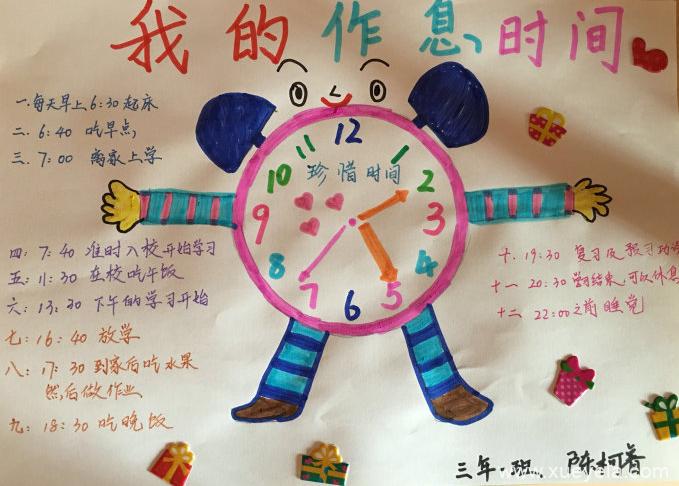 我的作息时间
一.每天早上6:30起床
二.6:40 吃早点
三.7:00 离家上学
四:7:40 准时入校开始学习
五:11:30 在校吃午饭
六:13:30 下午的学习开始
七:16:40 放学
八:17:30 到家后吃水果
然后做作业
九:18:30 吃晚饭
12
11
1
10
珍惜时间
2
9
3
8
4
7
5
6
十.19:30 复习及预习功
十一 20:30 结束,可以休息
十二 22:00之前睡觉
三年.一班、陈柯睿